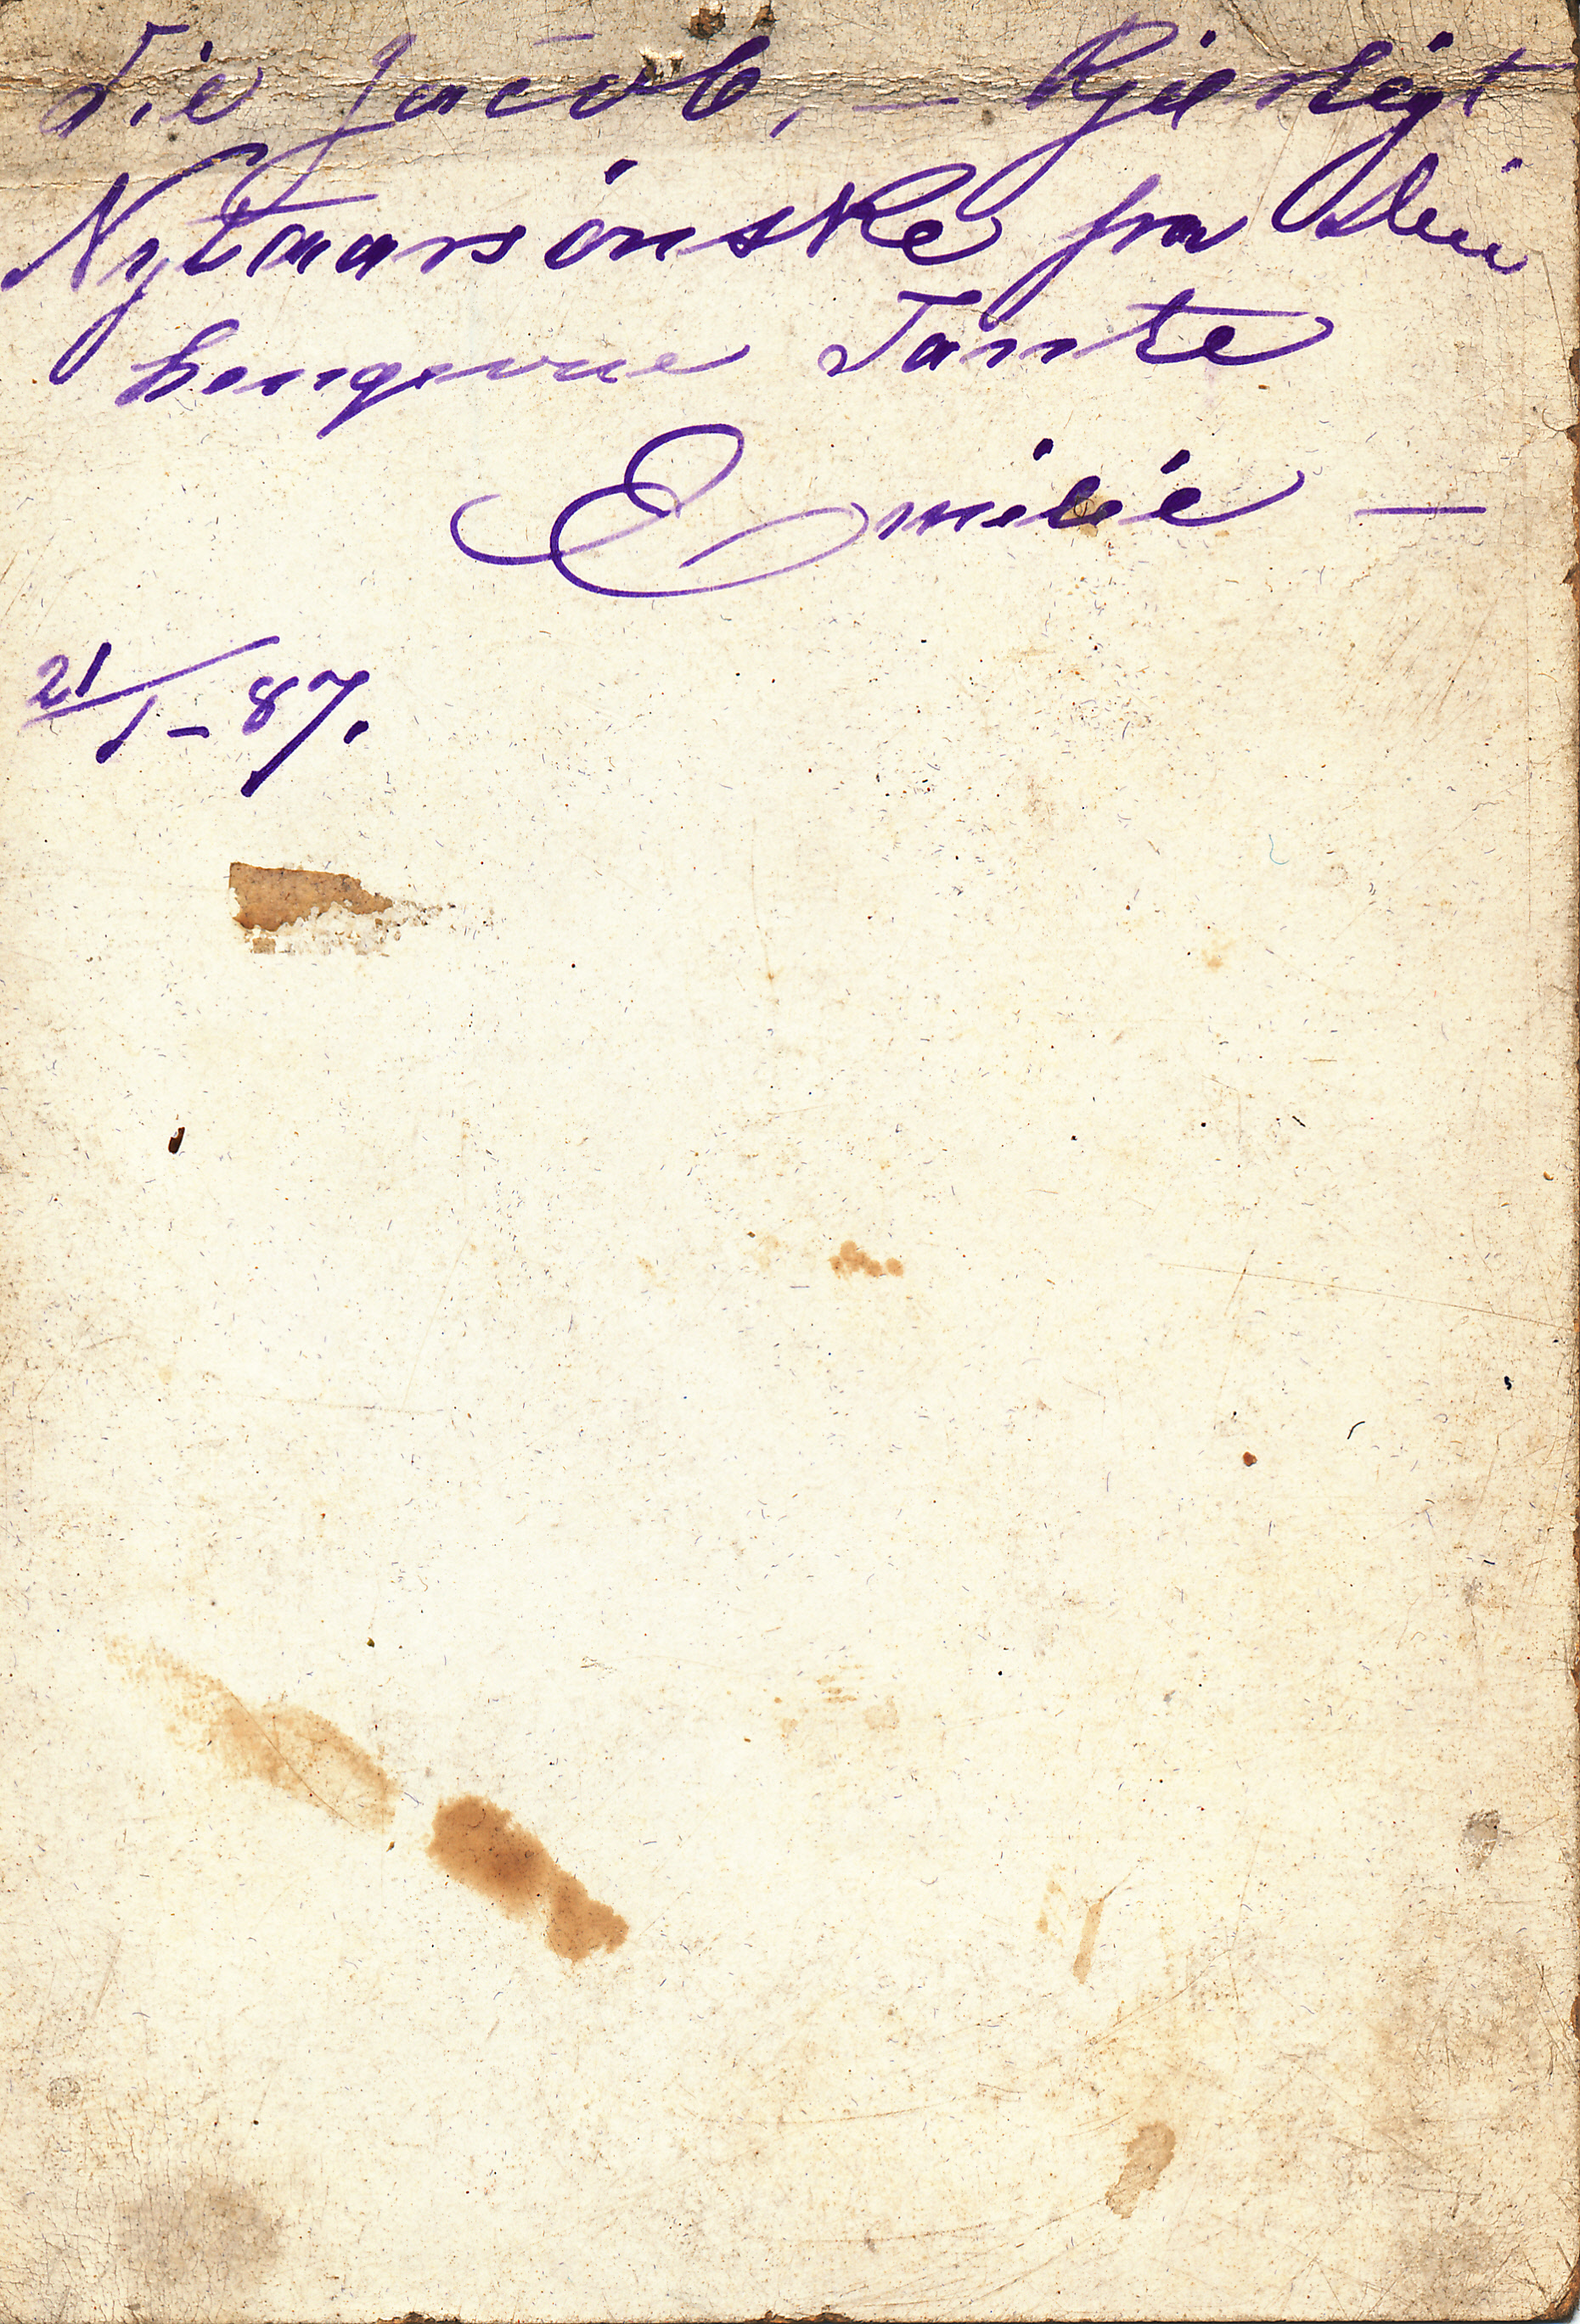 Til Jacob, — Kjerligt
Nytaarsönske fra din
hengivne Tante
Emilie —
21/1 - 87.